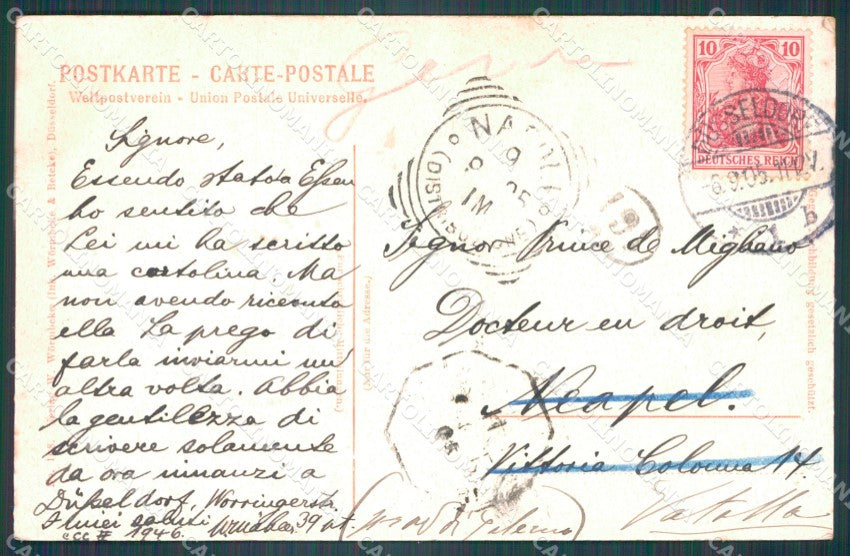 POSTKARTE - CARTE-POSTALE
Weltpostverein - Union Postale Universelle.
Signore,
Essendo stato a Eßen
ho sentito che
Lei mi ha scritto
una cartolina. Ma
non avendo ricevuta
ella La prego di
farla inviarmi un
altra volta. Abbia
la gentilezza di
scrivere solamente
da ora innanzi a
Düßeldorf, Worringerstr.
39
I miei saluti
1946
Signor Prince de Migliano
Docteur en droit,
Neapel.
Vittoria Colonna 14.
10 10
DEUTSCHES REICH
DÜSSELDORF
6.9.05. 11-12V.
* 1 b
NAPOLI
9
1M
13
(Nur für die Adresse.)
CARTOLINOMANIA